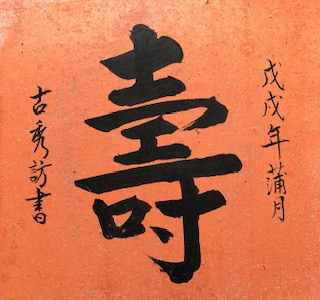 戊戌年蒲月
壽
古秀訪書